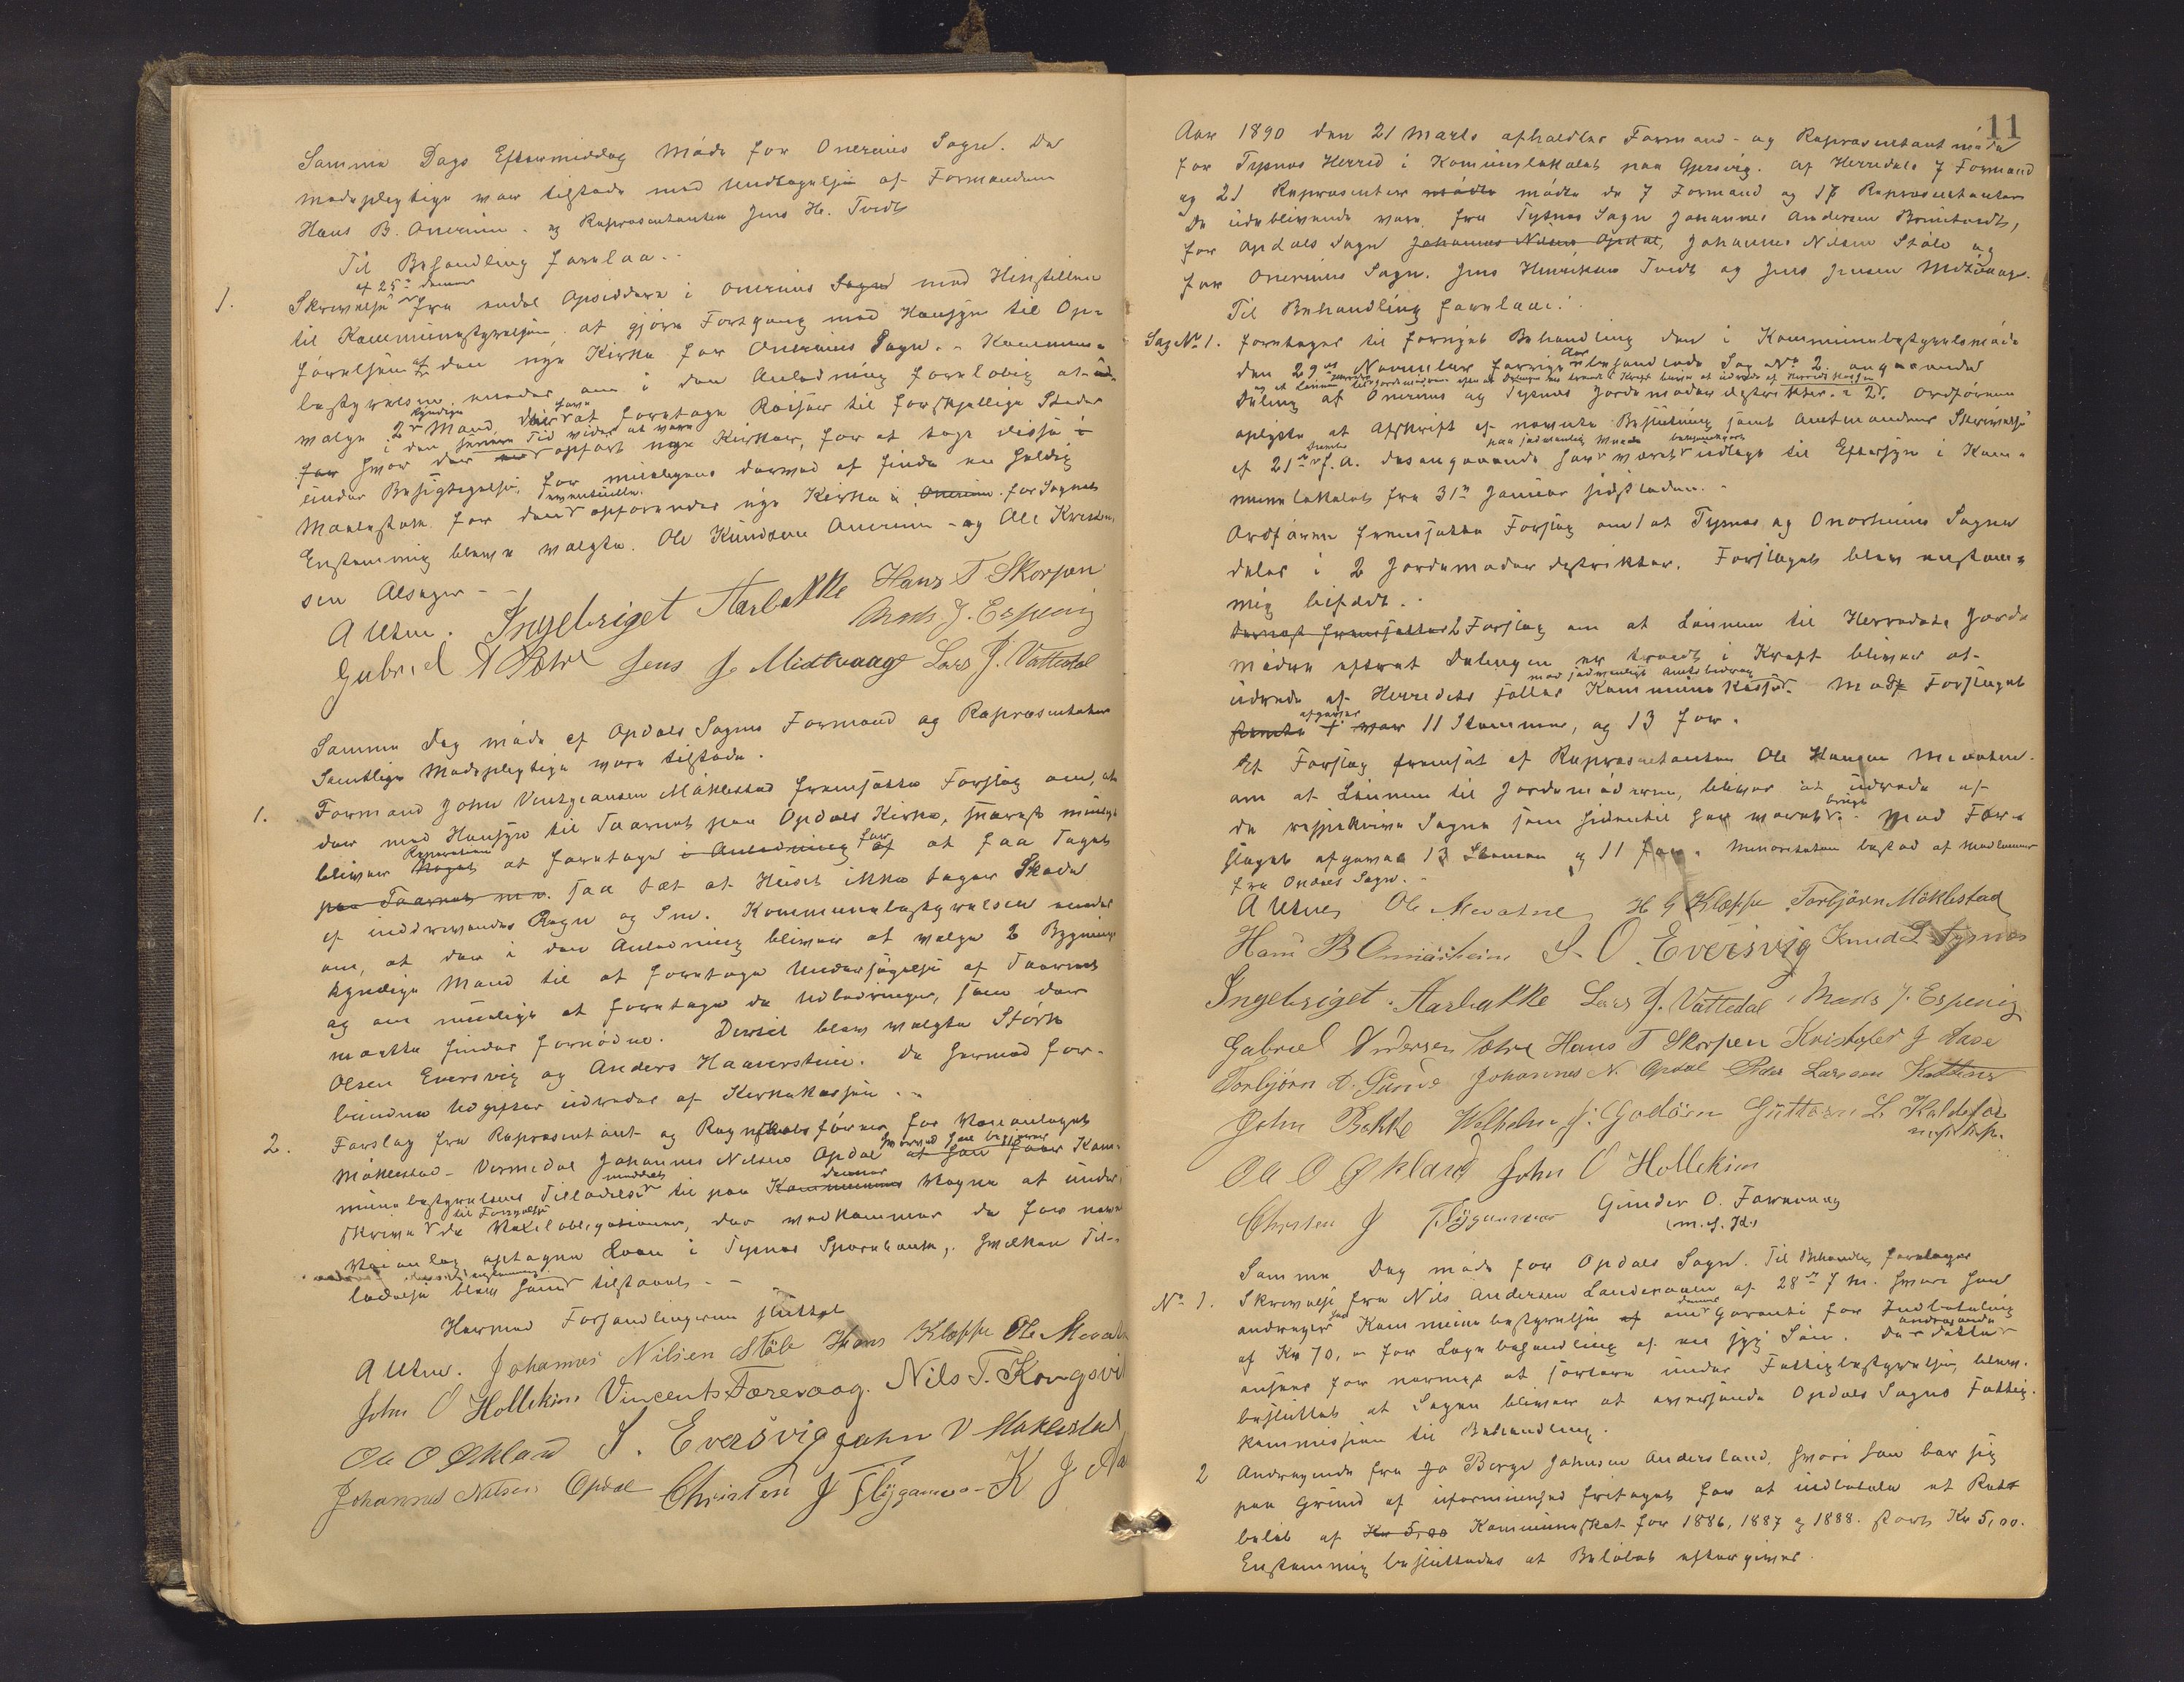 Samme Dags Eftermiddag Møde for Onereims Sogn. De
mødepligtige var tilstede med Undtagelse af Formanden
Hans B. Onereim. og Repræsentanten Jens H. Tvedt
Til Behandling forelaa..
1. Skrivelse af 25de dennes fra endel Opsiddere i Onereims Sogn med Henstillen
til Kommunestyrelsen. at gjøre Fortgang med Hensyn til Op-
førelsen af den nye Kirke for Onereims Sogn. - Kommune-
bestyrelsen enedes om i den Anledning foreløbig at ud-
vælge 2de kyndige Mænd, for at foretage Reiser til forskjellige Steder
hvor der i den senere Tid vides at være opført nye Kirker, for at tage disse i
under Besigtigelse, for muligens dermed at finde en heldig
Maalestok for den eventuelle opførendes nye Kirke i Onereim for Sognet
Enstemmig bleve valgte. Ole Knudsen Onereim - og Ole Kristen
sen Alsager -
A Uttne. Ingebriget Aarbakke Hans T Skorpen
Mads J. Espevig
Gabriel A Sætre Jens J. Midtvaage Lars J. Vattedal
Samme Dag møde af Opdals Sogns Formænd og Repræsentanter
Samtlige Mødepligtige vare tilstede.
1. Formand John Vintzeansen Møklestad fremsatte Forslag om, at
der med Hensyn til Taarnet paa Opdals Kirke, snarest muligt
bliver Reparation at foretage i Anledning for at faa Taget
paa Taarnet m.v. saa tæt at Huset ikke tager Skade
af inddrivende Regn og Sne. Kommunebestyrelsen enedes
om, at der i den Anledning bliver at vælge 2 Bygnings
kyndige Mænd til at foretage Undersøgelse af Taarnet
og om muligt at foretage de Udbedringer, som der
maatte findes fornødne. Dertil blev valgte Størk
Olsen Eversvig og Anders Haaversteen. De hermed for-
bundne Udgifter udredes af Kirkekassen. -
2. Forslag fra Repræsentant og Regnskabsfører for Veianlæget
Møklestad - Vermedal Johannes Nilsen Opdal hvorved han begjærer at han faar Kom-
munebestyrelsens Tilladelse meddelt til paa Kommunens dennes Vegne at under-
skrive til Fornyelse de Vexelobligationer, der vedkommer de for nævnte
Veianlæg optagne Laan i Tysnes Sparebank,. Hvilken Til-
ladelse blev ham enstemmig tilstaaet. -
Hermed Forhandlingerne sluttet
A Uttne. Johannes Nilsen Støle Hans Kleppe Ole Mevatne
John O Hollekim Vincents Færevaag. Nils T. Kongsvi
Ole O Økland S. Eversvig John V Møklestad
Johannes Nilsen Opdal Christen J Flygansvær K J Aa
11
Aar 1890 den 21 Marts afholdtes Formand- og Repræsentantmøde
for Tysnes Herred i Kommunelokalet paa Gjersvig. Af Herredets 7 Formænd
og 21 Repræsentanter mødte mødte de 7 Formænd og 17 Repræsentanter
De udeblivende vare fra Tysnes Sogn Johannes Andersen Breitvedt,
for Opdals Sogn Johannes Nilsen Opdal, Johannes Nilsen Støle og
for Onereims Sogn. Jens Henriksen Tvedt og Jens Jensen Midtvaage.
Til Behandling forelaae:
Sag No 1. foretages til fornyet Behandling den i Kommunebestyrelsesmøde
den 29de November forrige Aar behandlede Sag No 2. angaaende
Deling af Onereims og Tysnes Jordemoderdistrikter. i 2. Ordføreren
oplyste at Afskrift af nævnte Beslutning samt Amtmandens Skrivelse
af 21de Decembr f. A. desangaaende har paa sædvanlig Maade bekjendtgjort været udlagt til Eftersyn i Kom-
munelokalet fra 31te Januar sidstleden. -
Ordføreren fremsatte Forslag om 1 at Tysnes og Onereims Sogne
deles i 2 Jordemoderdistrikter. Forslaget blev enstem-
mig bifaldt. -
Dernæst fremsattes 2 Forslag om at Lønnen til Herredets Jorde
mødre efterat Delingen er traadt i Kraft bliver at
udrede af Herredets fælles Kommunekasse med sædvanligt Amtsbidrag. Mod Forslaget
afgaves 11 Stemmer, og 13 for.
Et Forslag fremsat af Repræsentanten Ole Hansen Mevatne.
om at Lønnen til Jordemødrene, bliver at udrede af
de respektive Sogne som hidentil har været brugt. Mod For-
slaget afgaves 13 Stemmer og 11 for. Minoriteten bestod af Medlemmer
fra Opdals Sogn. -
A Uttne, Ole Mevatne H G Kleppe Torbjørn Møklestad
Hans B Onnareheim S. O. Eversvig Knud L Tysnes
Ingebriget Aarbakke Lars J. Vattedal Mads J. Espevig
Gabriel Andersen Sætre Hans T Skorpen Kristofer J Aase
Torbjørn A. Sunde Johannes N. Opdal Peder Larsen
John Bakke Wilhelm J. Godøsen Guttorm L Kaldefos
Ole O Økland John O Hollekim
Christen J Flygansvær Gunder O. Færevaag
(m. f. P.)
Samme Dag møde for Opdals Sogn. Til Behandling foretages
No 1. Skrivelse fra Nils Andersen Landevaagen af 28de f. M. hvori han
andrager Kommunebestyrelse om dennes Garanti for Indbetaling
af Kr 70, - for Lægebehandling af en syg Søn. Da dette andragende
ansees for nærmest at sortere under Fattigbestyrelsen, blev.
besluttet at Sagen bliver at oversende Opdals Sogns Fattig-
kommission til Behandling.
2 Andragende fra Jo Berge Johnsen Andersland, hvori han bær sig
paa Grund af uformuenhed fritaget for at indbetale et Rest
beløb af Kr 5,00 Kommuneskat for 1886, 1887 og 1888. stort Kr 5,00.
Enstemmig besluttedes at Beløbet eftergives.